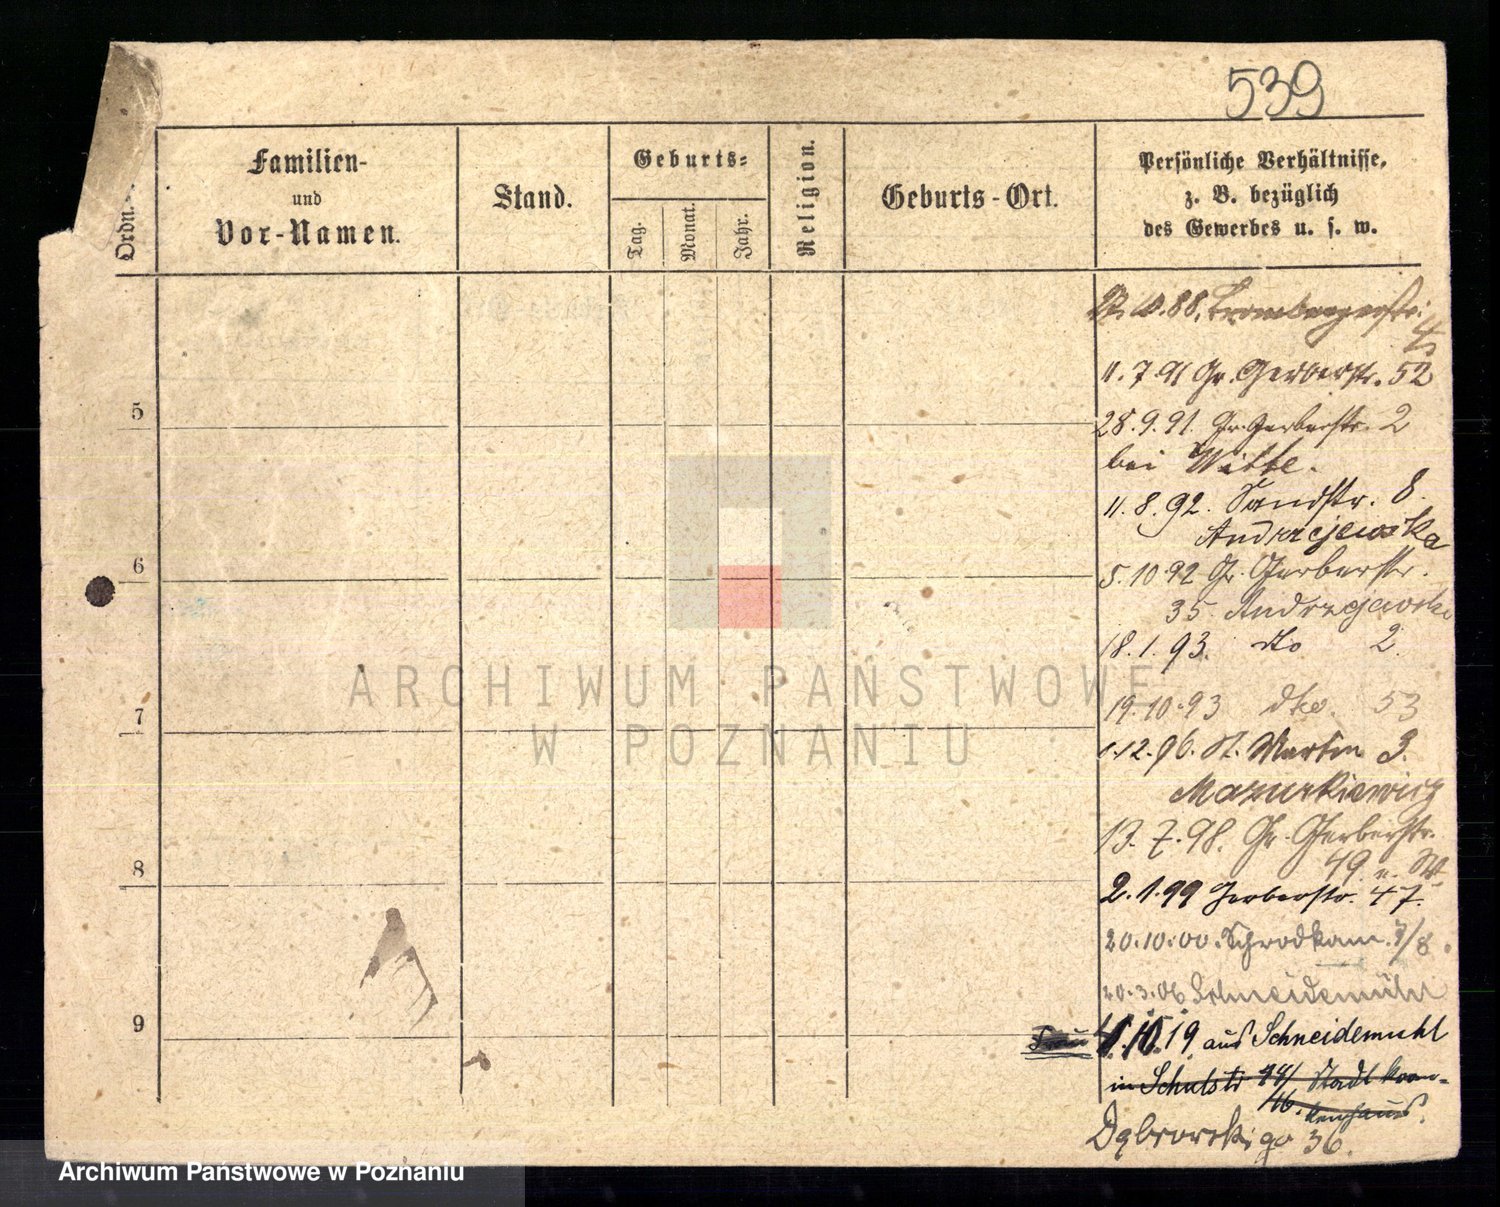 539
Ordn.
Familien-
und
Vor-Namen.
Stand.
Geburts-
Tag.
Monat.
Jahr.
Religion.
Geburts-Ort.
Persönliche Verhältnisse,
z. B. bezüglich
des Gewerbes u. s. w.
88. Brombergerstr.
4
11. 7 91 Gr. Gerberstr. 52
5
28. 9. 91. Gr. Gerberstr. 2
bei Witte.
11. 8. 92. Sandstr. 8.
Andrzejewska
6
5. 10 92 Gr. Gerberstr.
35 Andrzejewska
18. 1. 93. dto 2.
19. 10. 93 dto. 53
7
1. 12. 96. St. Martin 3.
Mazurkiewicz
13. 7. 98. Gr. Gerberstr.
49
8
2. 1. 99 Gerberstr. 47.
20. 10. 00. Schrodkam. 7/8.
20. 3. 06 Schneidemühl
9
Frau 10. 19 aus Schneidemuhl
in Schulstr Stadtkran-
kenhaus.
Dąbrowskiego 36.
ARCHIWUM PAŃSTWOWE
W POZNANIU
Archiwum Państwowe w Poznaniu